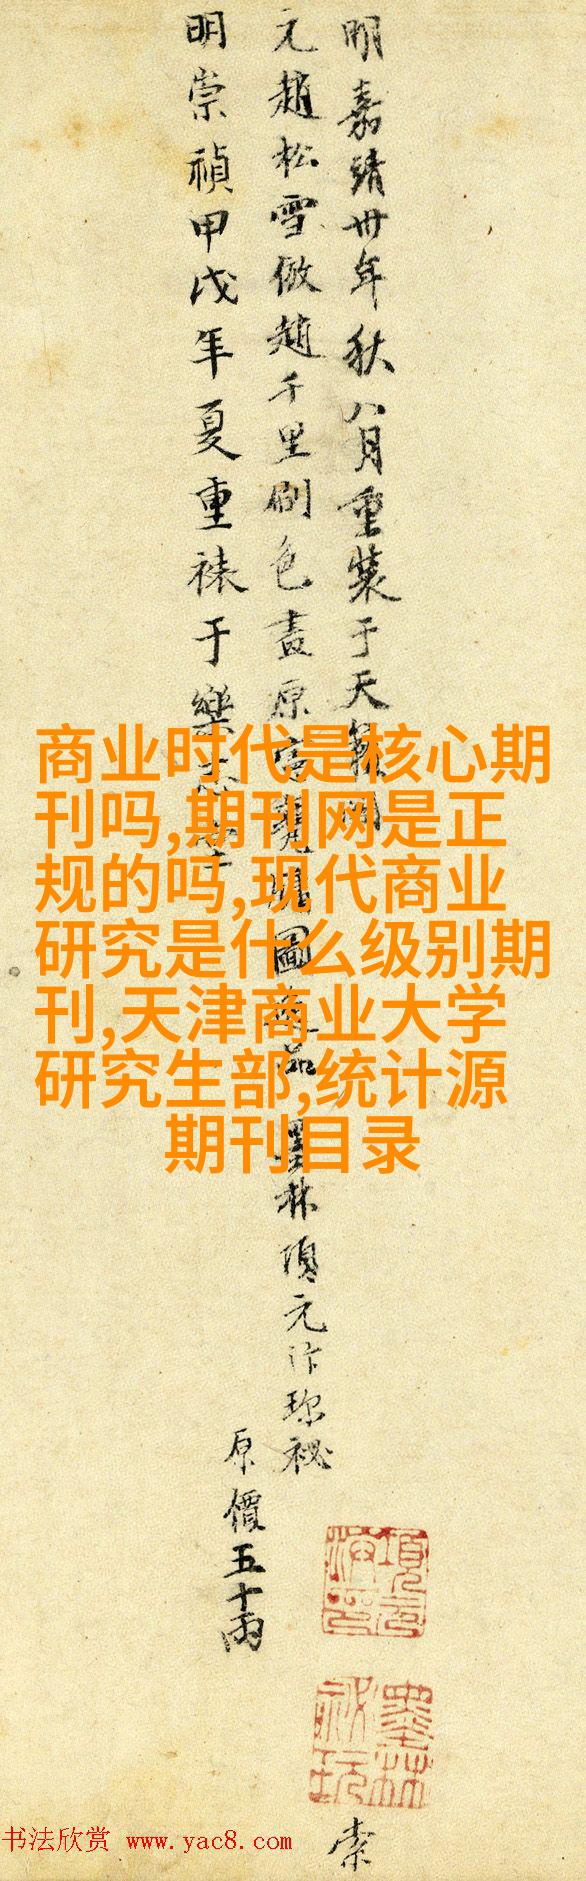 明嘉靖卅年秋八月重裝于天籟閣
元趙松雪倣趙千里刷色畫
墨林項元汴珍祕
原價五十兩
明崇禎甲戊年夏重裱于樂志堂
商业时代是核心期
刊吗,期刊网是正
规的吗,现代商业
研究是什么级别期
刊,天津商业大学
研究生部,统计源
期刊目录
墨林
索
书法欣赏 www.yac8.com